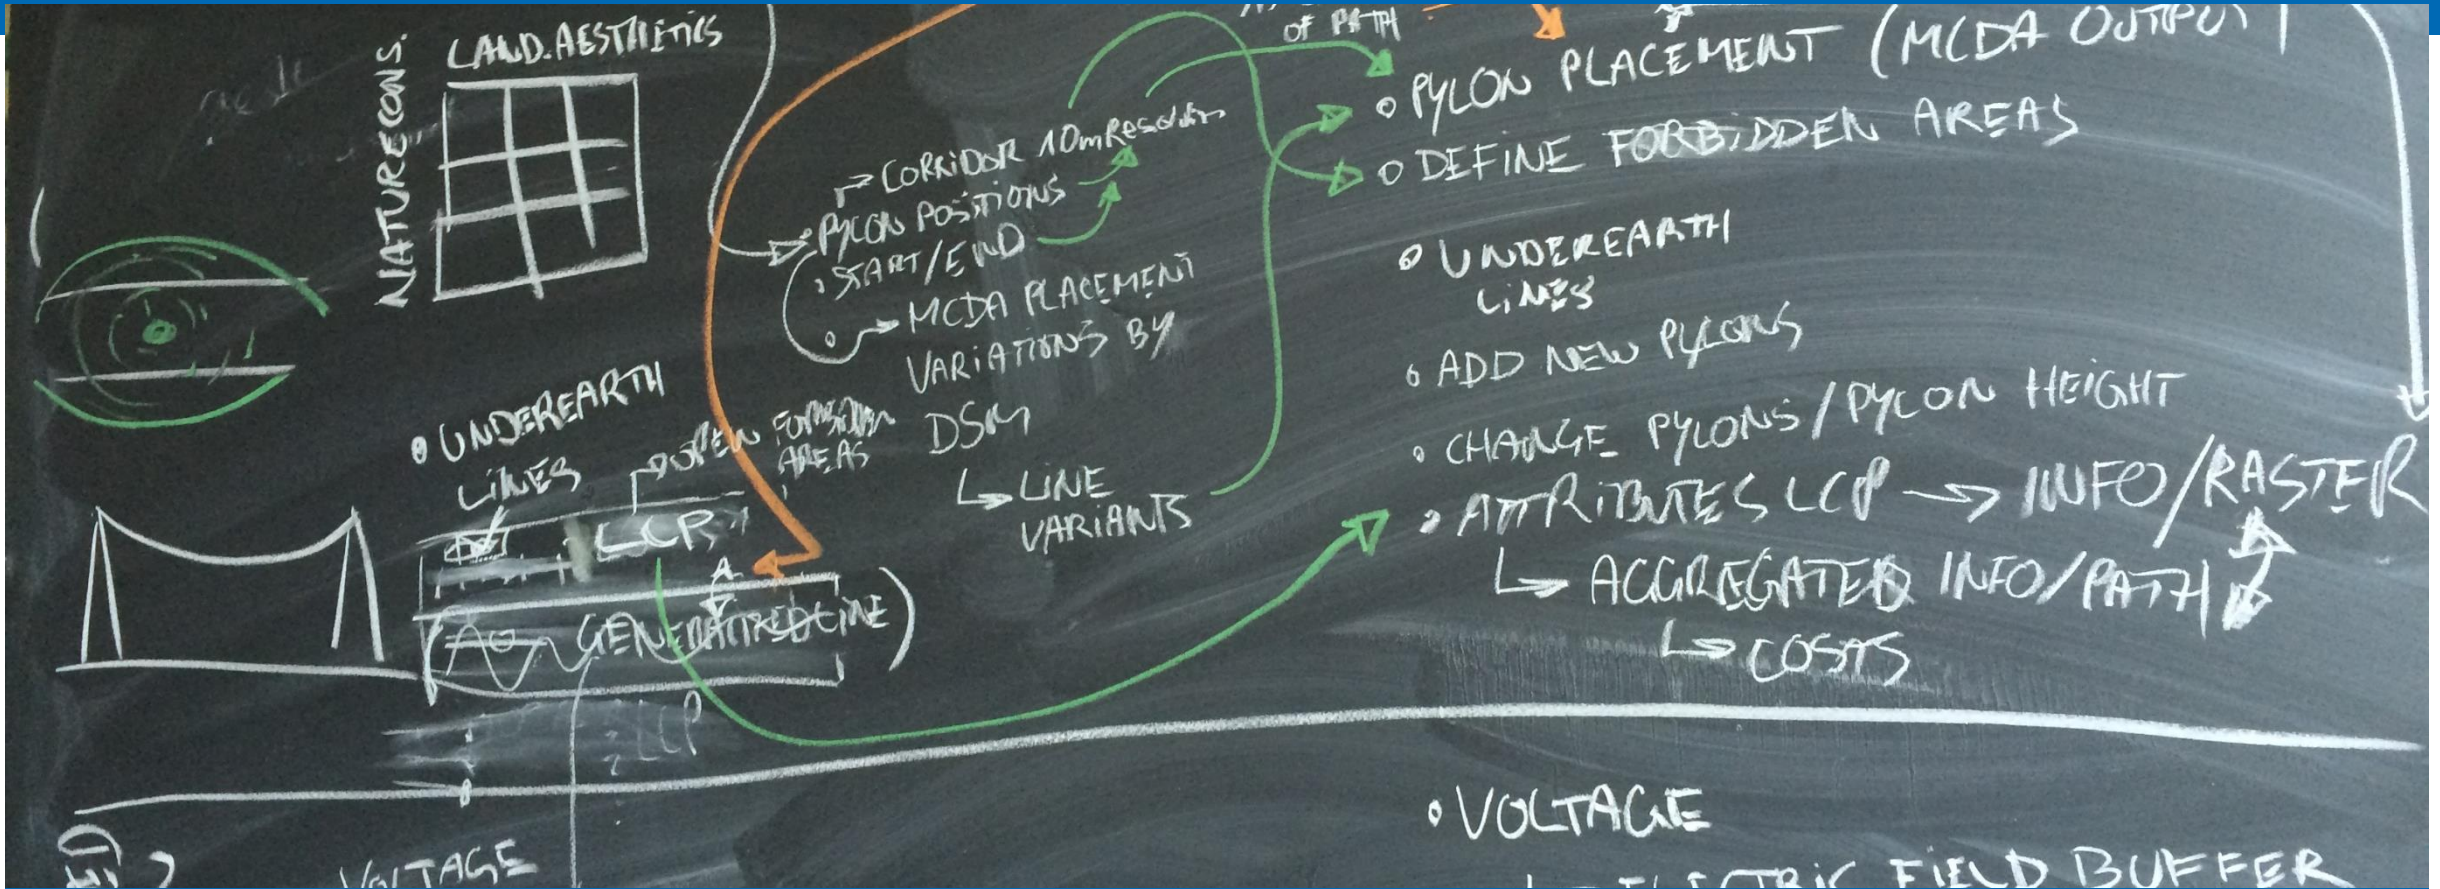 LAND.AESTHETICS
NATURECONS.
OF PATH
CORRIDOR 10m Resolution
PYLON POSITIONS
START/END
MCDA PLACEMENT
VARIATIONS BY
DSM
LINE
VARIANTS
UNDEREARTH
LINES
OPEN FORBIDDEN
AREAS
LCP
A
GENERALIZED LINE)
LCP
VOLTAGE
PYLON PLACEMENT (MCDA OUTPUT)
DEFINE FORBIDDEN AREAS
UNDEREARTH
LINES
ADD NEW PYLONS
CHANGE PYLONS/PYLON HEIGHT
ATTRIBUTES LCP → INFO/RASTER
AGGREGATED INFO/PATH
COSTS
VOLTAGE
ELECTRIC FIELD BUFFER